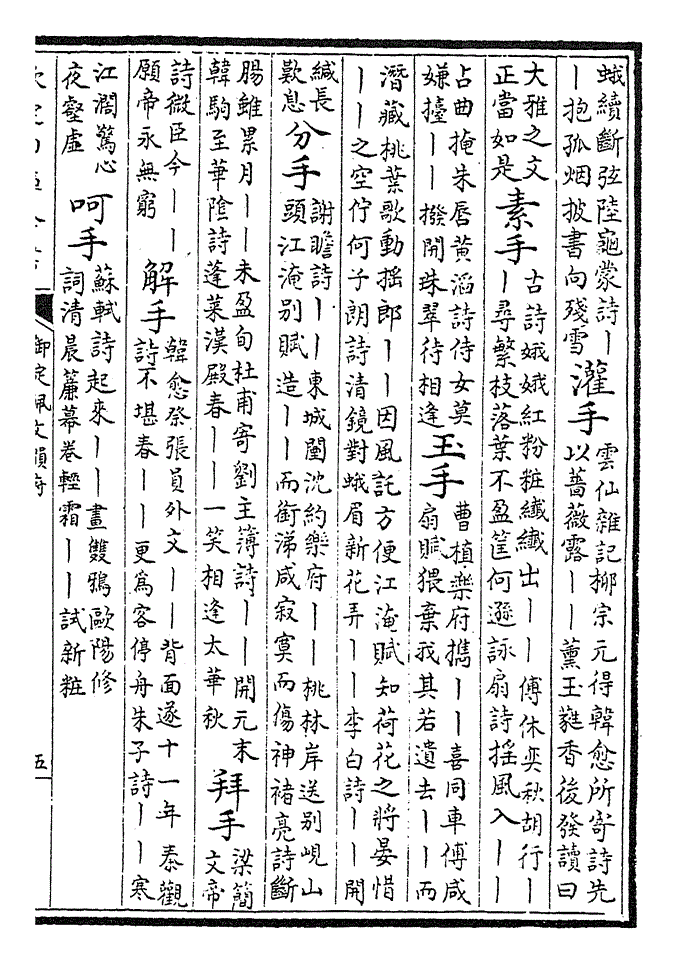 蛾續斷弦陸龜蒙詩丨
丨抱孤烟披書向殘雪
灌手
雲仙雜記柳宗元得韓愈所寄詩先
以薔薇露丨丨薰玉蕤香後發讀曰
大雅之文
正當如是
素手
古詩娥娥紅粉粧纖纖出丨丨傅休奕秋胡行丨
丨尋繁枝落葉不盈筐何遜詠扇詩摇風入丨丨
占曲掩朱唇黄滔詩侍女莫
嫌擡丨丨撥開珠翠待相逢
玉手
曹植樂府攜丨丨喜同車傅咸
扇賦猥棄我其若遺去丨丨而
潛藏桃葉歌動摇郎丨丨因風託方便江淹賦知荷花之將晏惜
丨丨之空佇何子朗詩清鏡對蛾眉新花弄丨丨李白詩丨丨開
緘長
歎息
分手
謝瞻詩丨丨東城闉沈約樂府丨丨桃林岸送别峴山
頭江淹别賦造丨丨而銜涕咸寂寞而傷神褚亮詩斷
腸雖累月丨丨未盈旬杜甫寄劉主簿詩丨丨開元末
韓駒至華陰詩蓬萊漢殿春丨丨一笑相逢太華秋
拜手
梁簡
文帝
詩微臣今丨丨
願帝永無窮
解手
韓愈祭張員外文丨丨背面遂十一年秦觀
詩不堪春丨丨更爲客停舟朱子詩丨丨寒
江濶驚心
夜壑虚
呵手
蘇軾詩起來丨丨畫雙鴉歐陽修
詞清晨簾幕卷輕霜丨丨試新粧
欽定四庫全書
御定佩文韻府
五